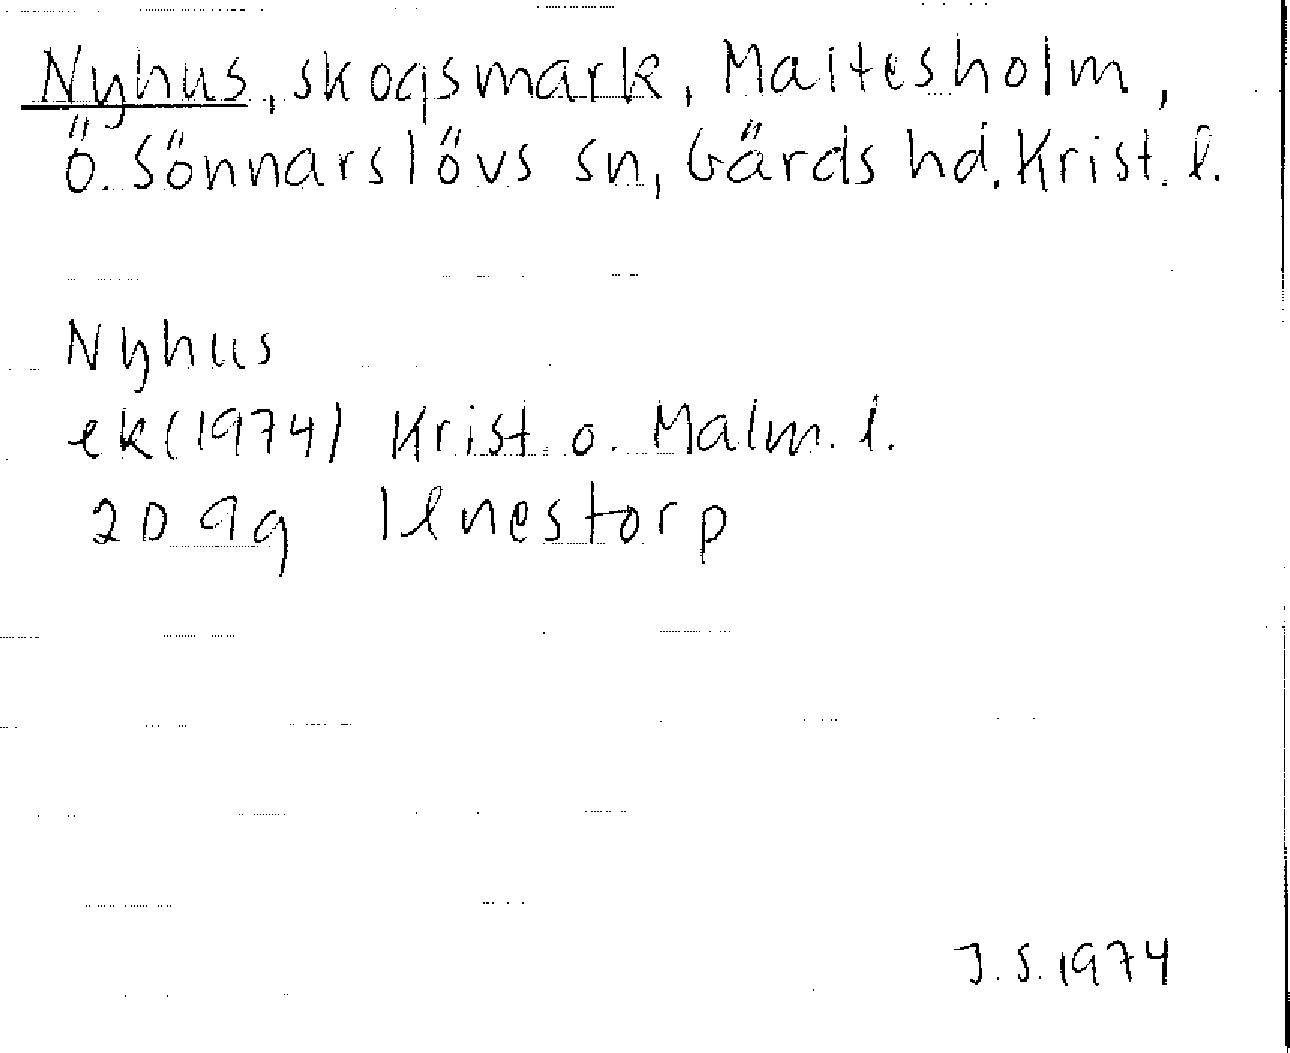 Nyhus, skogsmark, Maltesholm,
Ö. Sönnarslövs sn, Gärds hd. Krist. l.
Nyhus
ek (1974) Krist. o. Malm. l.
2D 9g Illnestorp
J. S. 1974